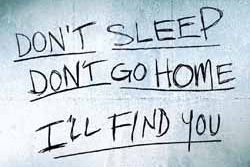 DON'T SLEEP
DON'T GO HOME
I'LL FIND YOU